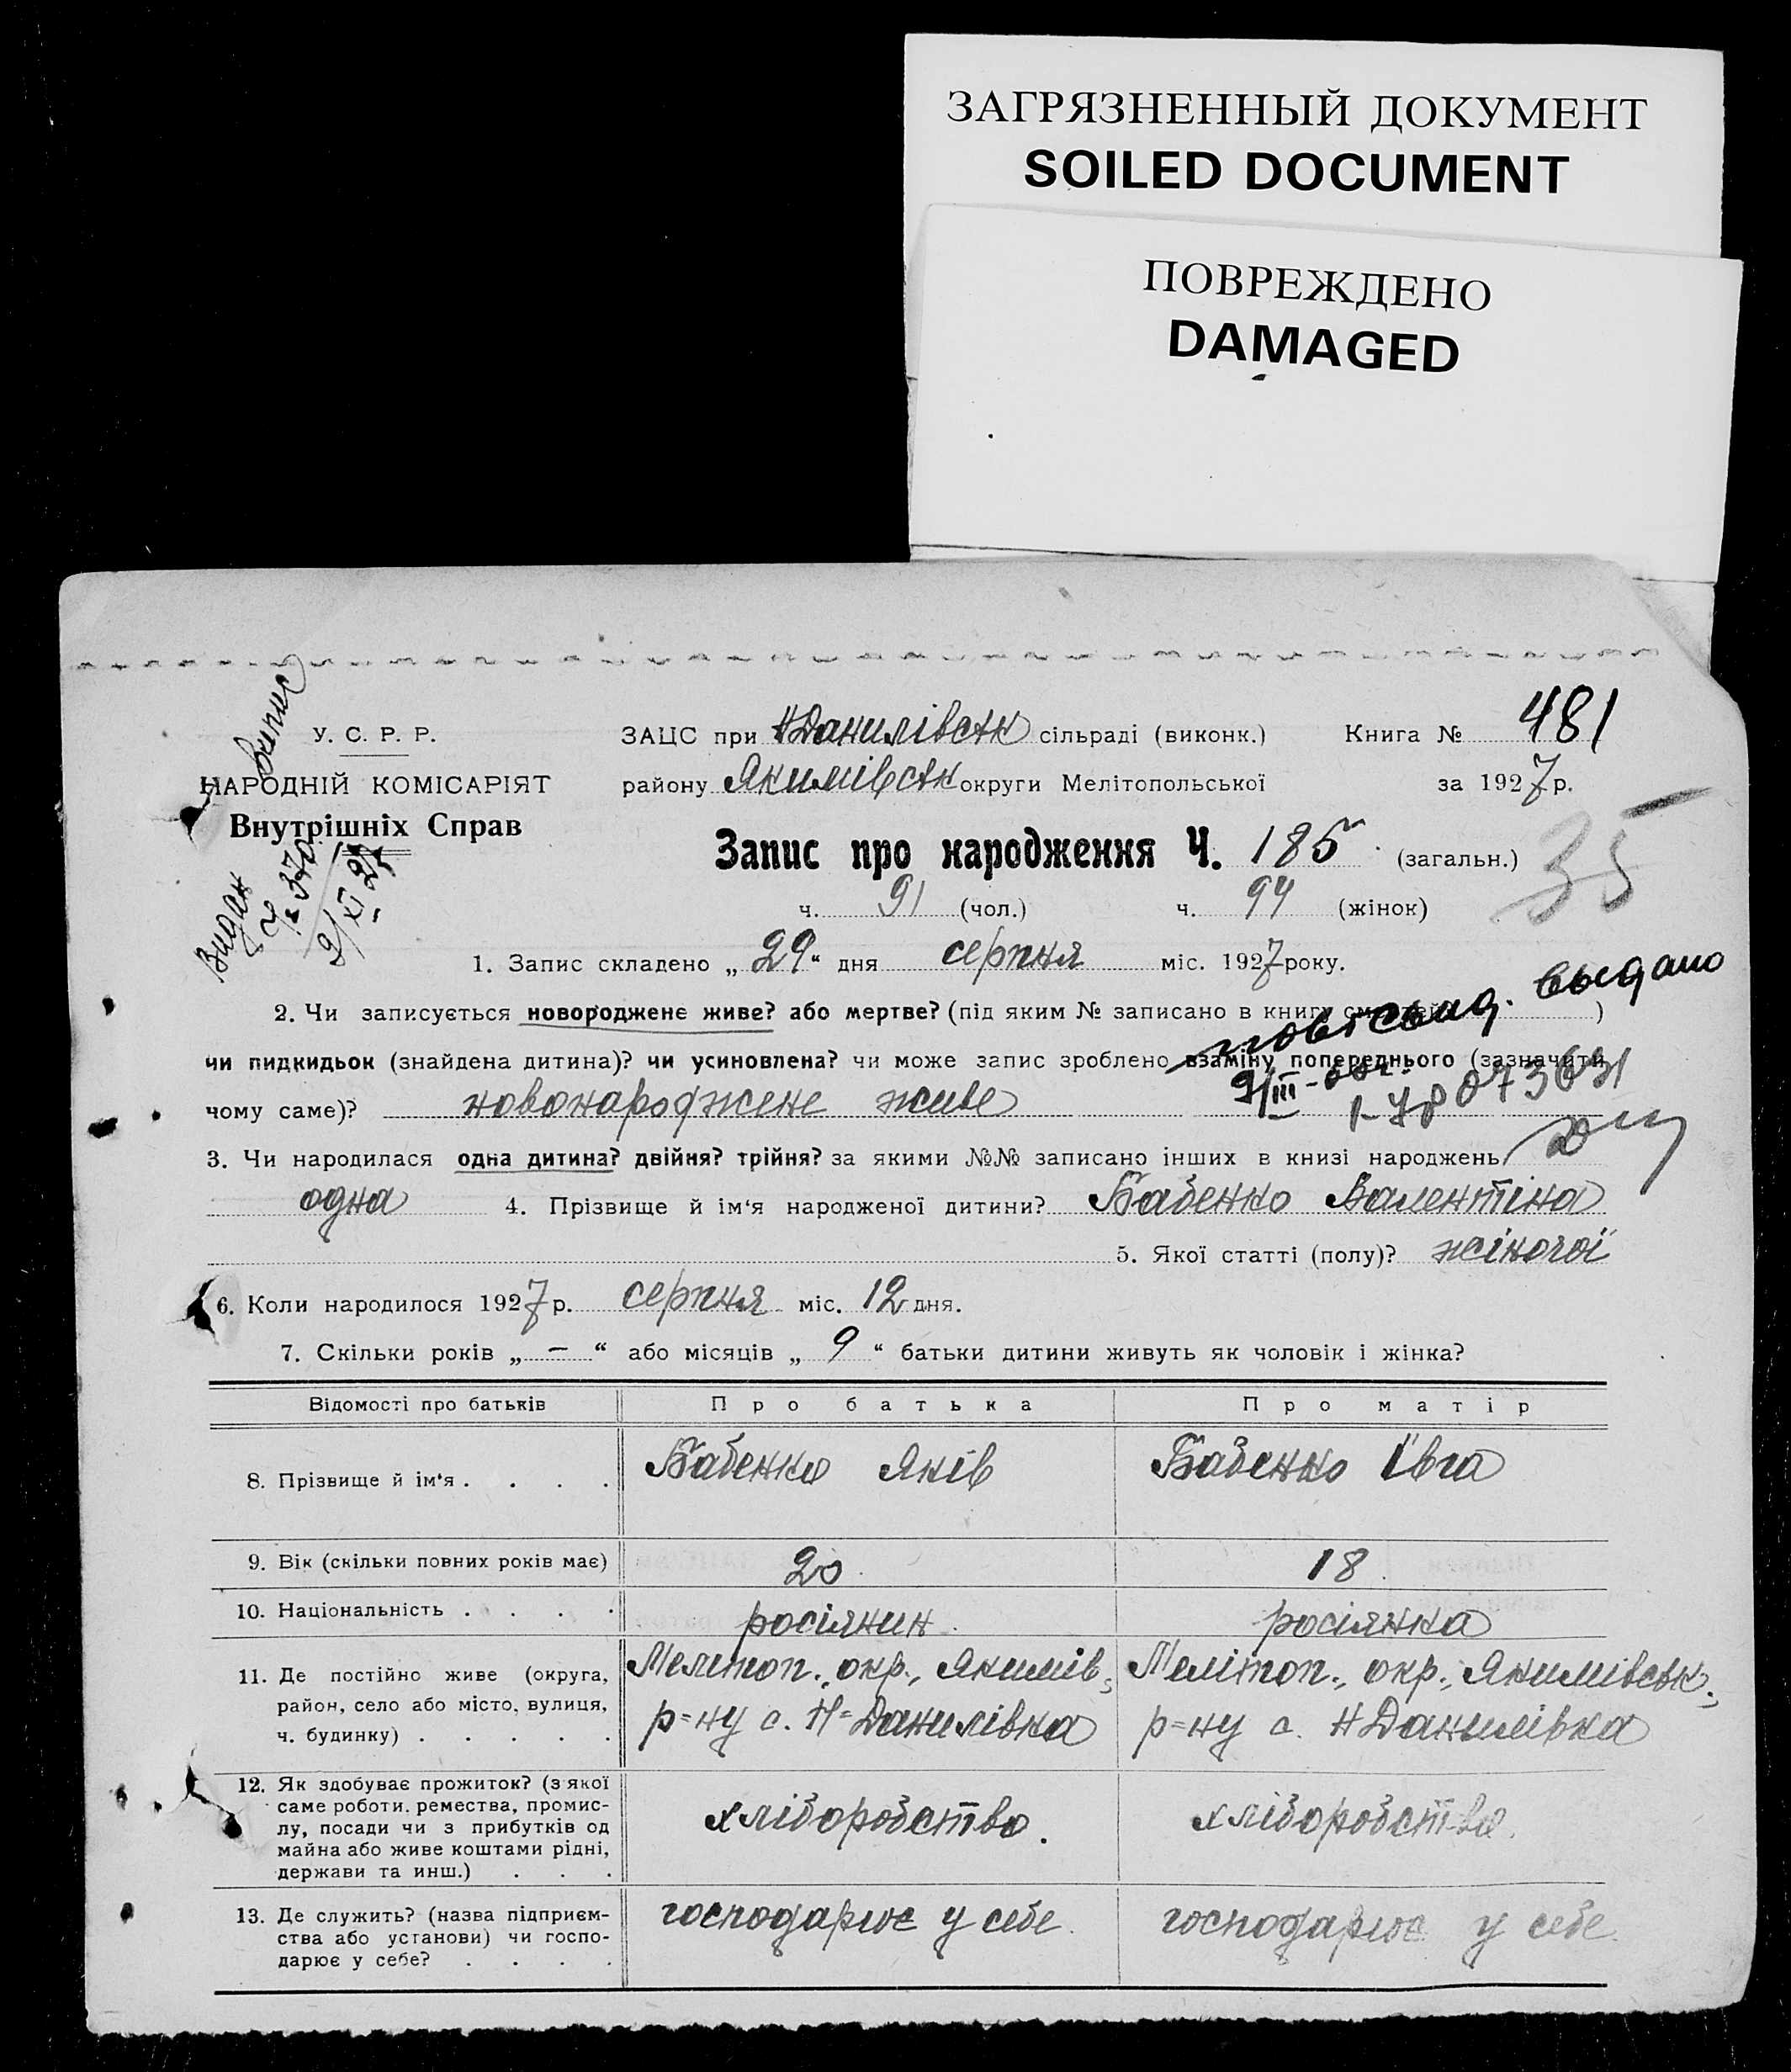 ЗАГРЯЗНЕННЫЙ ДОКУМЕНТ
SOILED DOCUMENT
ПОВРЕЖДЕНО
DAMAGED
Випис
Видан
ч. 370
2/XI 27
У. С. Р. Р.
НАРОДНІЙ КОМІСАРІЯТ
Внутрішніх Справ
ЗАЦС при Н Данилівськ сільраді (виконк.) Книга № 481
району Якимівськ округи Мелітопольської за 1927 р.
Запис про народження Ч. 185 (загальн.)
35
ч. 91 (чол.) ч. 94 (жінок)
1. Запис складено „29“ дня серпня міс. 1927 року.
повт. свид. выдано
2. Чи записується новороджене живе? або мертве? (під яким № записано в книгу смертей )
чи пидкидьок (знайдена дитина)? чи усиновлена? чи може запис зроблено взаміну попереднього (зазначити
9/III
073631
чому саме)? новонароджене живе
3. Чи народилася одна дитина? двійня? трійня? за якими №№ записано інших в книзі народжень
одна 4. Прізвище й ім‘я народженої дитини? Бабенко Валентіна
5. Якої статті (полу)? жіночої
6. Коли народилося 1927 р. серпня міс. 12 дня.
7. Скільки років „ — “ або місяців „ 9 “ батьки дитини живуть як чоловік і жінка?
Відомості про батьків Про батька Про матір
8. Прізвище й ім‘я . . . . Бабенко Яків Бабенко Ївга
9. Вік (скільки повних років має) 20 18
10. Національність . . . . росіянин росіянка
11. Де постійно живе (округа,
район, село або місто, вулиця,
ч. будинку) . . . . .
Мелітоп., окр., Якимів,
р=ну с. Н=Данилівка
Мелітоп., окр., Якимівськ.,
р=ну с. Н Данилівка
12. Як здобуває прожиток? (з якої
саме роботи, ремества, промис-
лу, посади чи з прибутків од
майна або живе коштами рідні,
держави та инш.) . . .
хліборобство.
хліборобство.
13. Де служить? (назва підприєм-
ства або установи) чи госпо-
дарює у себе? . . . .
господарює у себе.
господарює у себе.